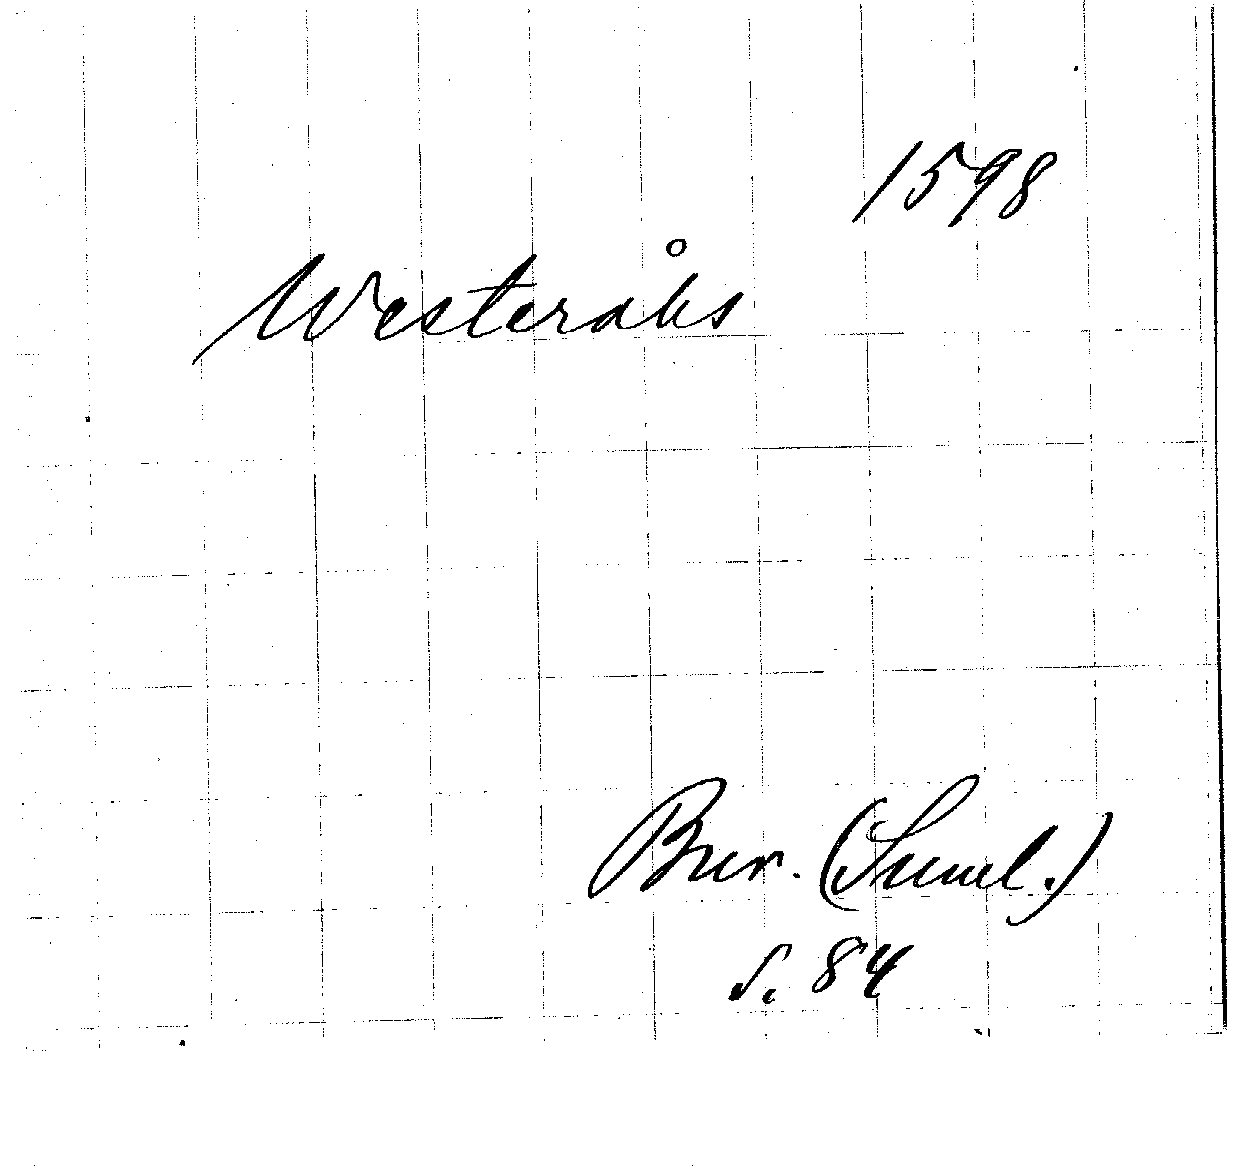 1598
Westeråhs
Bur. (Suml.)
s. 84